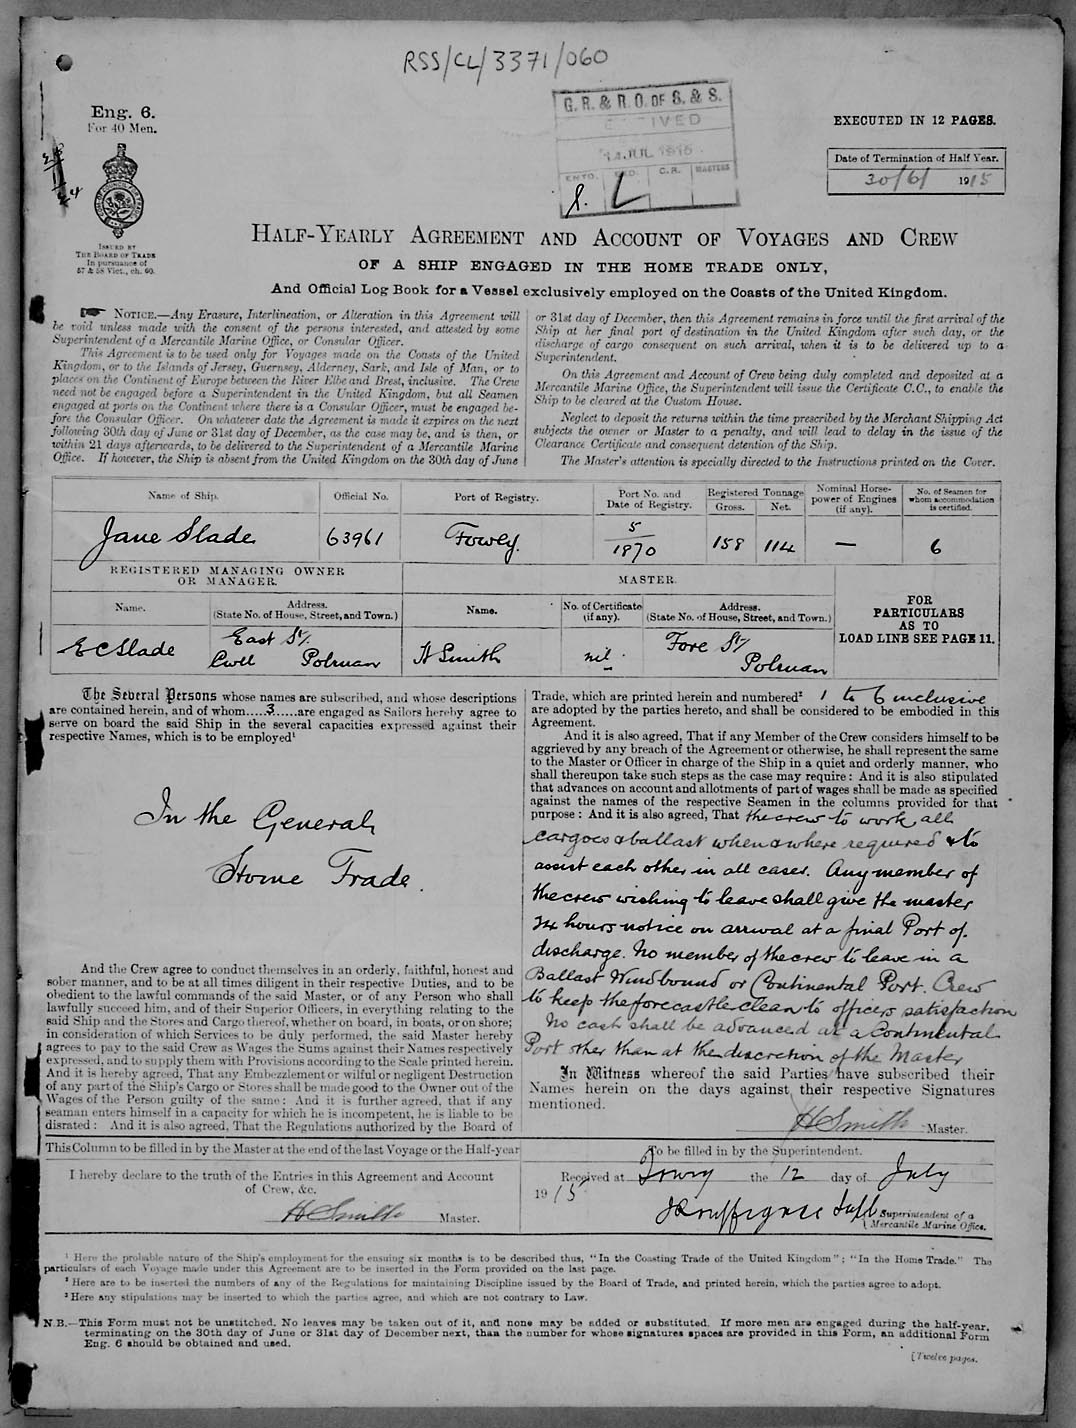 RSS/CL/3371/060
Eng. 6.
For 40 Men.
ISSUED BY
THE BOARD OF TRADE
In pursuance of
57 & 58 Vict., ch. 60.
G. R. & R. O. OF S. & S.
JUL 1915
C.R. MASTERS
EXECUTED IN 12 PAGES.
Date of Termination of Half Year.
30/6/ 1915
HALF-YEARLY AGREEMENT AND ACCOUNT OF VOYAGES AND CREW
OF A SHIP ENGAGED IN THE HOME TRADE ONLY,
And Official Log Book for a Vessel exclusively employed on the Coasts of the United Kingdom.
NOTICE.—Any Erasure, Interlineation, or Alteration in this Agreement will
be void unless made with the consent of the persons interested, and attested by some
Superintendent of a Mercantile Marine Office, or Consular Officer.
This Agreement is to be used only for Voyages made on the Coasts of the United
Kingdom, or to the Islands of Jersey, Guernsey, Alderney, Sark, and Isle of Man, or to
places on the Continent of Europe between the River Elbe and Brest, inclusive. The Crew
need not be engaged before a Superintendent in the United Kingdom, but all Seamen
engaged at ports on the Continent where there is a Consular Officer, must be engaged be-
fore the Consular Officer. On whatever date the Agreement is made it expires on the next
following 30th day of June or 31st day of December, as the case may be, and is then, or
within 21 days afterwards, to be delivered to the Superintendent of a Mercantile Marine
Office. If however, the Ship is absent from the United Kingdom on the 30th day of June
or 31st day of December, then this Agreement remains in force until the first arrival of the
Ship at her final port of destination in the United Kingdom after such day, or the
discharge of cargo consequent on such arrival, when it is to be delivered up to a
Superintendent.
On this Agreement and Account of Crew being duly completed and deposited at a
Mercantile Marine Office, the Superintendent will issue the Certificate C.C., to enable the
Ship to be cleared at the Custom House.
Neglect to deposit the returns within the time prescribed by the Merchant Shipping Act
subjects the owner or Master to a penalty, and will lead to delay in the issue of the
Clearance Certificate and consequent detention of the Ship.
The Master's attention is specially directed to the Instructions printed on the Cover.
Name of Ship. Official No. Port of Registry. Port No. and Date of Registry. Registered Tonnage Gross. Net. Nominal Horse-power of Engines (if any). No. of Seamen for whom accommodation is certified.
Jane Slade 63961 Fowey. 5/1870 158 114 — 6
REGISTERED MANAGING OWNER OR MANAGER.
MASTER.
Name. Address. (State No. of House, Street, and Town.) Name. No. of Certificate (if any). Address. (State No. of House, Street, and Town.)
FOR
PARTICULARS
AS TO
LOAD LINE SEE PAGE 11.
E C Slade East St/ Polruan H Smith nil. Fore St/ Polruan
The Several Persons whose names are subscribed, and whose descriptions
are contained herein, and of whom.....3.....are engaged as Sailors hereby agree to
serve on board the said Ship in the several capacities expressed against their
respective Names, which is to be employed¹
In the General
Home Trade.
And the Crew agree to conduct themselves in an orderly, faithful, honest and
sober manner, and to be at all times diligent in their respective Duties, and to be
obedient to the lawful commands of the said Master, or of any Person who shall
lawfully succeed him, and of their Superior Officers, in everything relating to the
said Ship and the Stores and Cargo thereof, whether on board, in boats, or on shore;
in consideration of which Services to be duly performed, the said Master hereby
agrees to pay to the said Crew as Wages the Sums against their Names respectively
expressed, and to supply them with Provisions according to the Scale printed herein.
And it is hereby agreed, That any Embezzlement or wilful or negligent Destruction
of any part of the Ship's Cargo or Stores shall be made good to the Owner out of the
Wages of the Person guilty of the same: And it is further agreed, that if any
seaman enters himself in a capacity for which he is incompetent, he is liable to be
disrated: And it is also agreed, That the Regulations authorized by the Board of
Trade, which are printed herein and numbered² 1 to 6 inclusive
are adopted by the parties hereto, and shall be considered to be embodied in this
Agreement.
And it is also agreed, That if any Member of the Crew considers himself to be
aggrieved by any breach of the Agreement or otherwise, he shall represent the same
to the Master or Officer in charge of the Ship in a quiet and orderly manner, who
shall thereupon take such steps as the case may require: And it is also stipulated
that advances on account and allotments of part of wages shall be made as specified
against the names of the respective Seamen in the columns provided for that
purpose: And it is also agreed, That the crew to work all
cargoes & ballast when & where required & to
assist each other in all cases. Any member of
the crew wishing to leave shall give the master
24 hours notice on arrival at a final Port of.
discharge. No member of the crew to leave in a
Ballast Windbound or Continental Port. Crew
to keep the forecastle clean to officers satisfaction
No cash shall be advanced at a Continental
Port other than at the discretion of the Master
In Witness whereof the said Parties have subscribed their
Names herein on the days against their respective Signatures
mentioned.
H Smith Master.
This Column to be filled in by the Master at the end of the last Voyage or the Half-year
I hereby declare to the truth of the Entries in this Agreement and Account
of Crew, &c.
H Smith Master.
To be filled in by the Superintendent.
Received at Fowey the 12 day of July
1915
Supt Superintendent of a
Mercantile Marine Office.
¹ Here the probable nature of the Ship's employment for the ensuing six months is to be described thus, "In the Coasting Trade of the United Kingdom"; "In the Home Trade." The
particulars of each Voyage made under this Agreement are to be inserted in the Form provided on the last page.
² Here are to be inserted the numbers of any of the Regulations for maintaining Discipline issued by the Board of Trade, and printed herein, which the parties agree to adopt.
³ Here any stipulations may be inserted to which the parties agree, and which are not contrary to Law.
N.B.—This Form must not be unstitched. No leaves may be taken out of it, and none may be added or substituted. If more men are engaged during the half-year,
terminating on the 30th day of June or 31st day of December next, than the number for whose signatures spaces are provided in this Form, an additional Form
Eng. 6 should be obtained and used.
[Twelve pages.